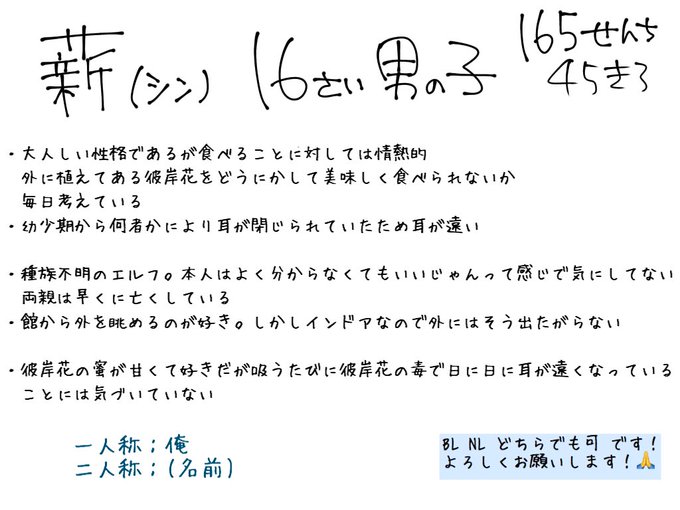 薪(シン) 16さい男の子 165せんち
45きろ
・大人しい性格であるが食べることに対しては情熱的
外に植えてある彼岸花をどうにかして美味しく食べられないか
毎日考えている
・幼少期から何者かにより耳が閉じられていたため耳が遠い
・種族不明のエルフ。本人はよく分からなくてもいいじゃんって感じで気にしてない
両親は早くに亡くしている
・館から外を眺めるのが好き。しかしインドアなので外にはそう出たがらない
・彼岸花の蜜が甘くて好きだが吸うたびに彼岸花の毒で日に日に耳が遠くなっている
ことには気づいていない
一人称;俺
二人称;(名前)
BL NL どちらでも可 です!
よろしくお願いします!🙏